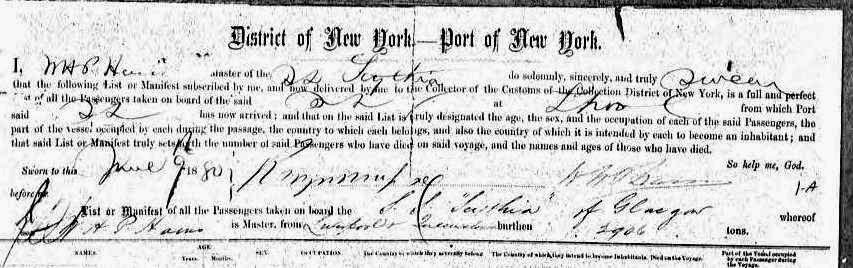 District of New York—Port of New York.
I, W H P Hains Master of the SS Scythia do solemnly, sincerely, and truly swear
that the following List or Manifest subscribed by me, and now delivered by me to the Collector of the Customs of the Collection District of New York, is a full and perfect
list of all the Passengers taken on board of the said SS at Lpool from which Port
said SS has now arrived; and that on the said List is truly designated the age, the sex, and the occupation of each of the said Passengers, the
part of the vessel occupied by each during the passage, the country to which each belongs, and also the country of which it is intended by each to become an inhabitant; and
that said List or Manifest truly sets forth the number of said Passengers who have died on said voyage, and the names and ages of those who have died.
Sworn to this June 9 1880 So help me, God.
before me 1-A
List or Manifest of all the Passengers taken on board the S.S. "Scythia" of Glasgow whereof
W H P Hains is Master, from Liverpool & Queenstown burthen 2906 tons.
NAMES. AGE Years. Months. SEX. OCCUPATION The Country to which they severally belong The Country of which they intend to become Inhabitants. Died on the Voyage. Part of the Vessel occupied by each Passenger during the Voyage.